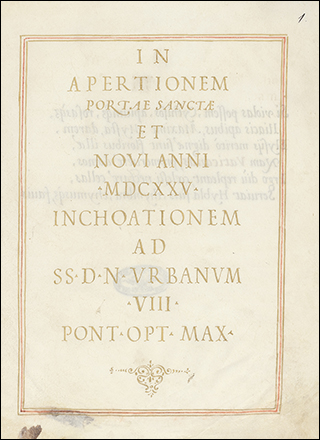 1
IN
APERTIONEM
PORTAE SANCTÆ
ET
NOVI ANNI
·MDCXXV·
INCHOATIONEM
AD
SS·D·N·VRBANVM
·VIII·
PONT·OPT·MAX·